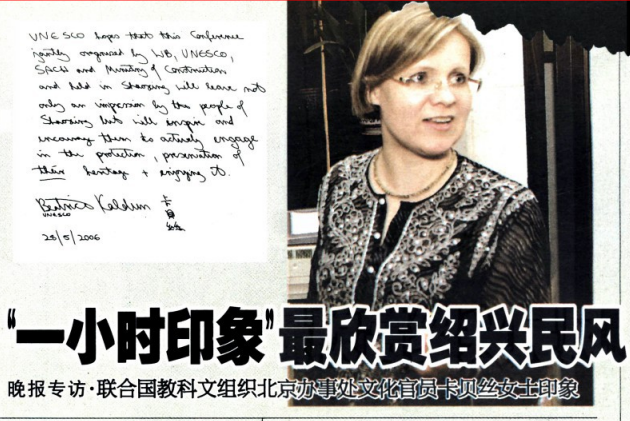 UNESCO hopes that this Conference
jointly organised by WB, UNESCO,
SACH and Ministry of Construction
and held in Shaoxing will leave not
only an impression by the people of
Shaoxing but will inspire and
encourage them to actively engage
in the protection, preservation of
their heritage + enjoying it.
Beatrice Kaldun 卡贝丝
UNESCO
28/5/2006
“一小时印象”最欣赏绍兴民风
晚报专访·联合国教科文组织北京办事处文化官员卡贝丝女士印象